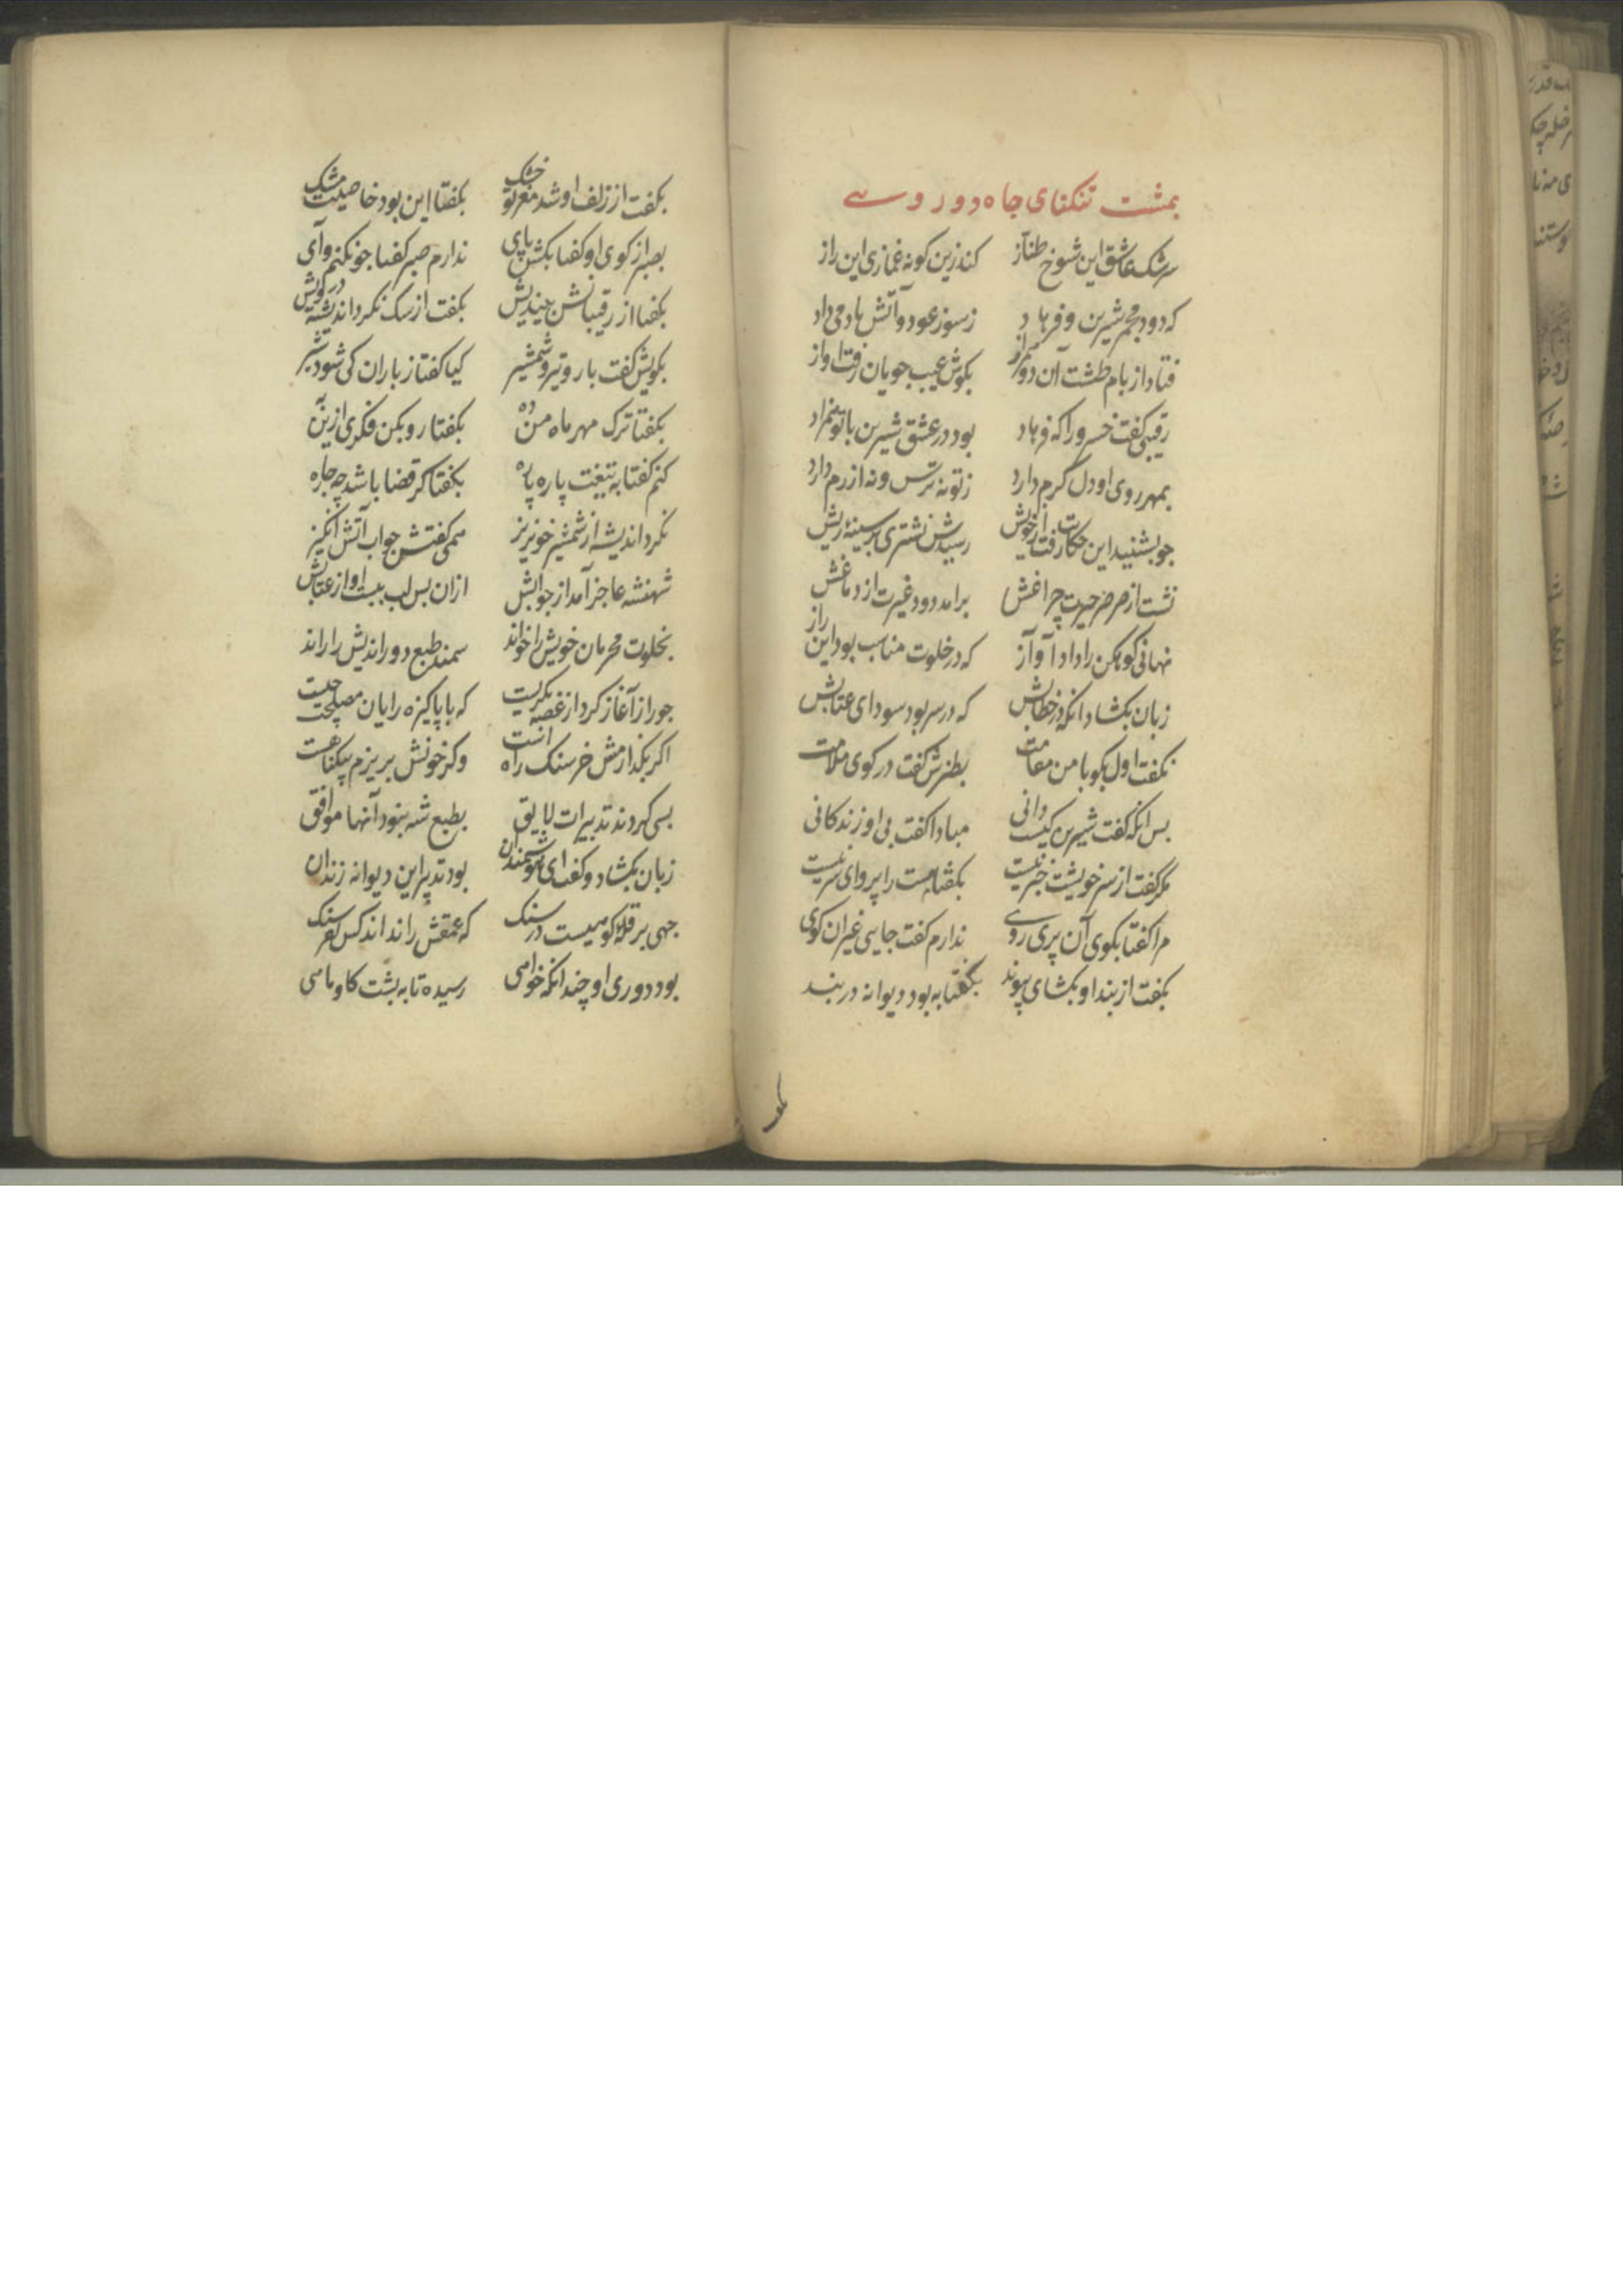 بمشت تنکنای جاه دوروسے
سرشک عاشق این شوخ طناز کند زین کونه غمازی این راز
که دود مجمر شیرین و فرهاد ز سوز عود و آتش یاد می داد
فتاد از بام طشت آن دو بکوش عیب جویان رفت اواز
رقیبی کفت خسرو را که فرهاد بود در عشق شیرین با تو
بمهر روی او دل کرم دارد ز تو نه ترس و نه ازرم دارد
جو بشنید این حکایت رفت از خویش رسیدش نشتری بر سینهٔ ریش
نشت از صرصر حیرت چراغش برامد دود غیرت از دماغش
نهانی کوهکن را داد آواز که در خلوت مناسب بود این راز
زبان بکشاد انکه در خطابش که در سر بود سودای عتابش
بکفت اول بکو با من مقامت بطنزش کفت در کوی ملامت
بس انکه کفت شیرین کیست دانی مبادا کفت بی او زندکانی
مکر کفت از سر خویشت خبر نیست بکفتا مست را پروای سر نیست
مرا کفتا بکوی آن پری روے ندارم کفت جایی غیر ان کوی
بکفت از بند او بکشای پیوند بکفتا به بود دیوانه در بند
بکفت
بکفت از زلف او شد مغز تو خشک بکفتا این بود خاصیت مشک
بصبر از کوی او کفتا بکش پای ندارم صبر کفتا جون کنم وای
بکفتا از رقیبانش بیندیش بکفت از سک نکرد اندیشه درویش
بکویش کفت بارد تیر و شمشیر کیا کفتا ز باران کی شود سیر
بکفتا ترک مهر ماه من ده بکفتا رو بکن فکری ازین به
کنم کفتا به تیغت پاره پاره بکفتا کر قضا باشد چه جاره
نکرد اندیشه از شمشیر خونریز همی کفتش جواب آتش انکیز
شهنشه عاجز آمد از جوابش ازان بس لب ببست اواز عتابش
بخلوت محرمان خویش را خواند سمند طبع دوراندیش را راند
جو راز آغاز کرد از غصه بکریست که با پاکیزه رایان مصلحت چیست
اکر بکذارمش خرسنک راه است وکر خونش بریزم بیکناهست
بسی کردند تدبیرات لایق بطبع شه نبود آنها موافق
زبان بکشاد و کفت ای هوشمندان بود تدبیر این دیوانه زندان
جهی بر قلهٔ کوهیست در سنک که عمقش را نداند کس
بود دوری او چندانکه خواهی رسیده تا به پشت کاو ماهی